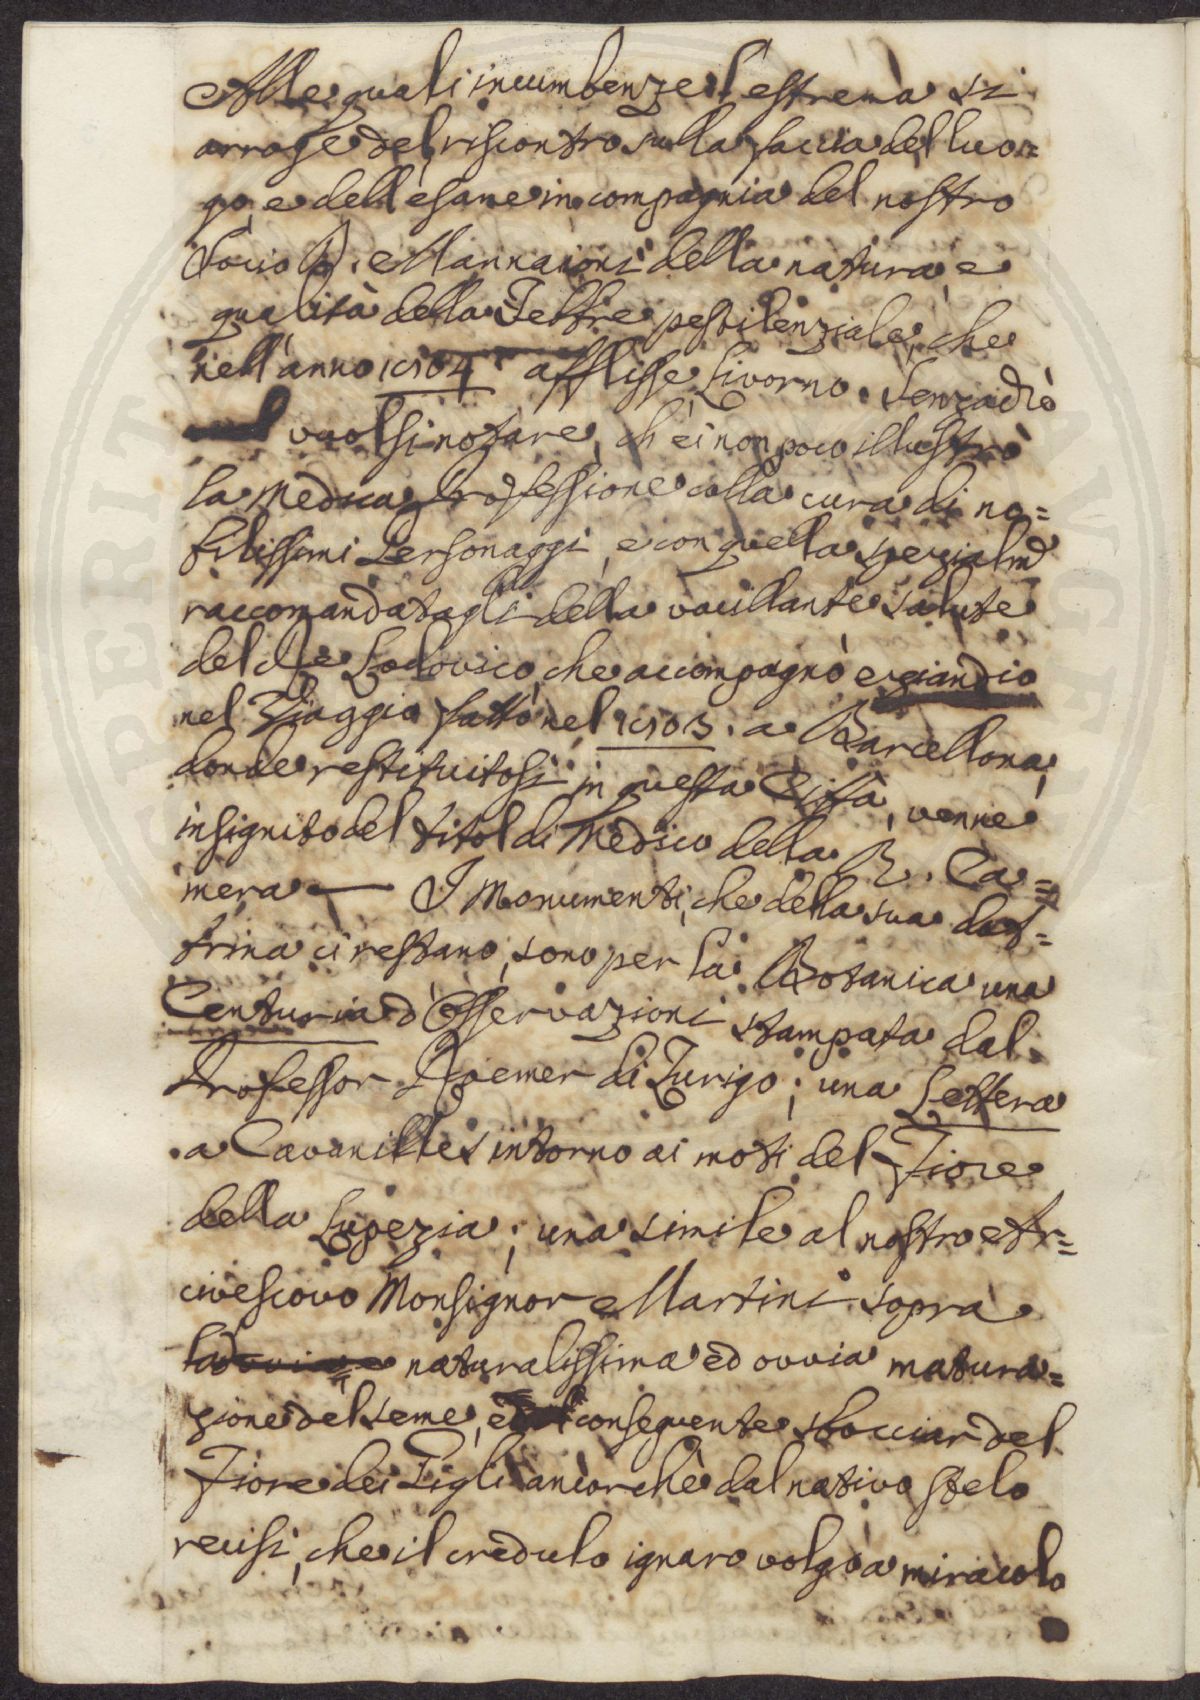 Alle quali incumbenze l'estrema si
arroge del riscontro sulla faccia del luo=
go, e dell'esame in compagnia del nostro
Socio D. Mannaioni della natura, e
qualità della Febbre pestilenziale, che
nell'anno 1804 afflisse Livorno. Senzadiò
vuolsi notare, ch'ei non poco illustrò
la Medica Professione colla cura di no=
bilissimi Personaggi, e con quella spezialmē
raccomandatagli della vacillante salute
del Re Lodovico, che accompagnò eziandio
nel Viaggio fatto nel 1803. a Barcellona,
donde restituitosi in questa Città, venne
insignito del titol di Medico della R. Ca=
mera — I Monumenti, che della sua dot=
trina ci restano, sono per la Botanica una
Centuria d'Osservazioni stampata dal
Professor Roemer di Zurigo; una Lettera
a Cavanilles intorno ai moti del Fiore
della Lopezia; una simile al nostro Ar=
civescovo Monsignor Martini sopra
la naturalissima ed ovvia matura=
zione del seme, e conseguente sbocciar del
Fiore dei Gigli ancorchè dal nativo stelo
recisi, che il credulo ignaro volgo a miracolo